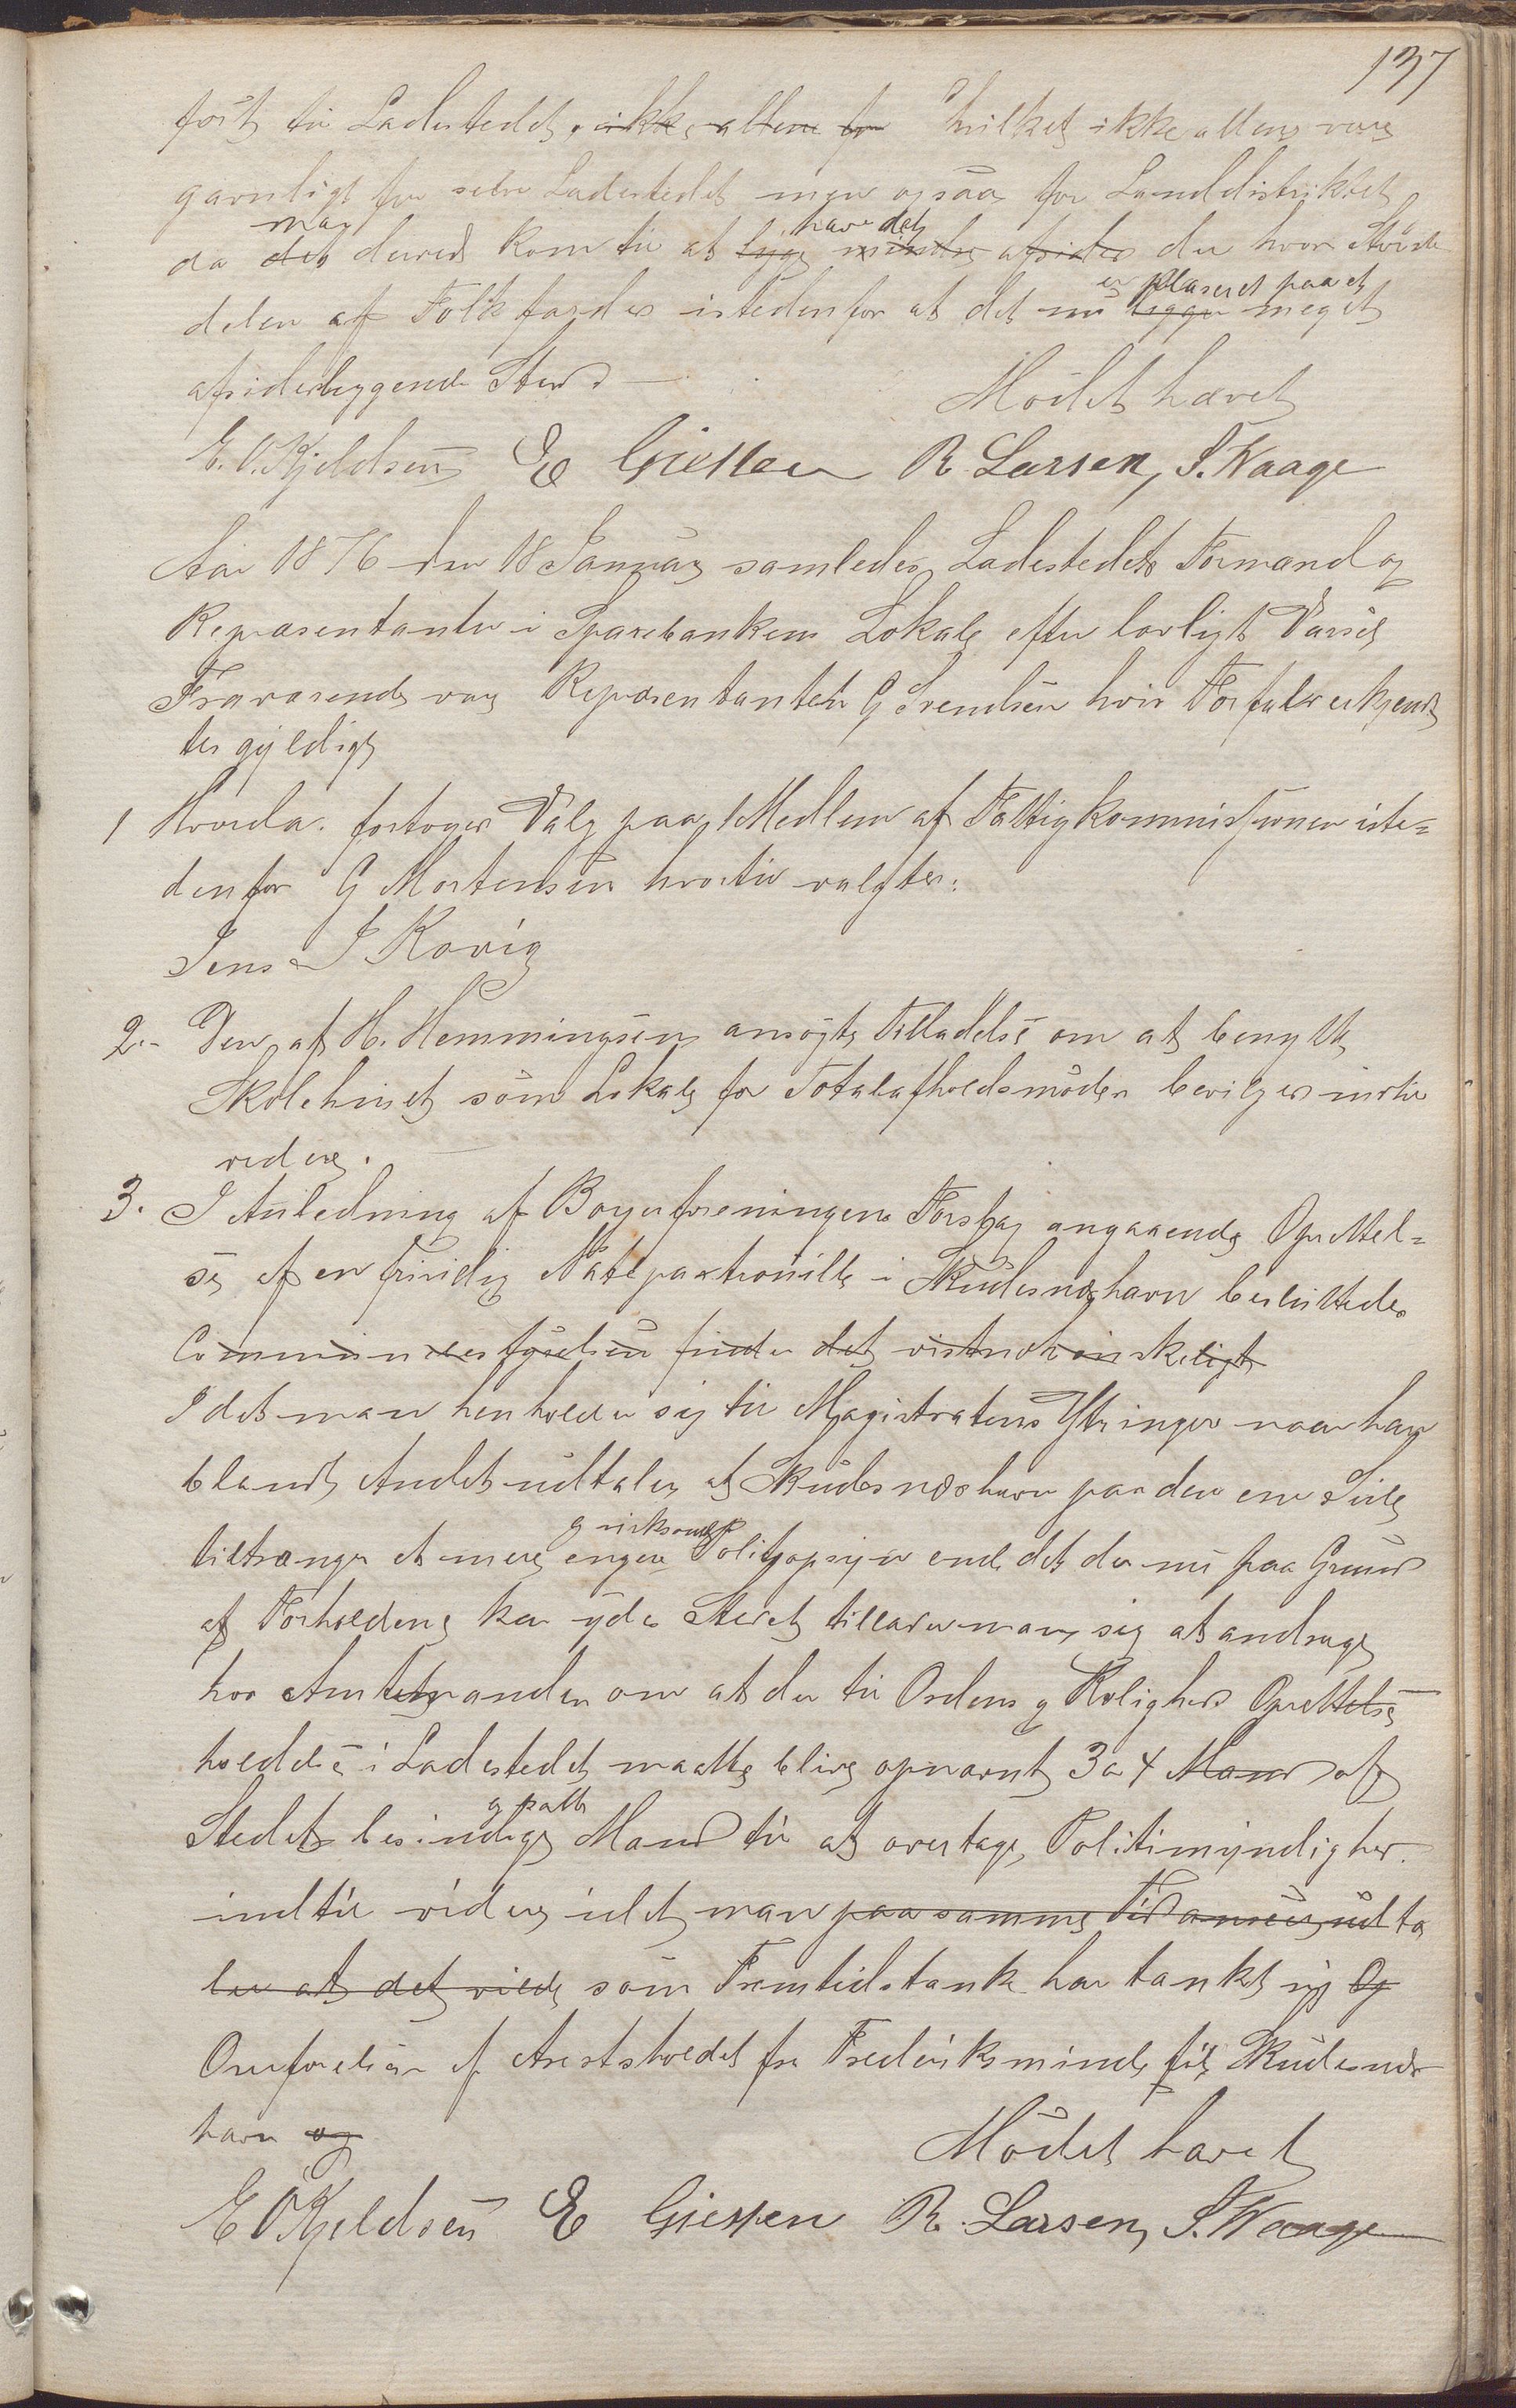 137
ført til Ladestedet, ikke allene for hvilket ikke allene vare
gavnligt for selve Ladestedet men ogsaa for Landdistriktet
man have det
da det derved kom til at ligge mindre afsides der hvor Største
er plaseret paa et
delen af Folk færdes istedenfor at det nu ligger meget
afsidesliggende Sted
Mødet hævet
E. O. Kjeldsen E Giessen R Larsen, S. Waage
Aar 1876 den 18 Januar samledes Ladestedets Formænd og
Repræsentanter i Sparebankens Lokale efter lovligt Varsel
Fraværende var Repræsentanten G Svendsen hvis Forfald erkjend
tes gyldigt
1 Hvorda. foretoges Valg paa 1 Medlem af Fattigkommisjonen iste=
denfor G Mortensen hvortil valgtes:
Jens J Kovig
2. Den af H. Hemmingsen ansøgte Tilladelse om at benytte
Skolehuset som Lokale for Totalafholdsmøder beviliges indtil
videre.
3. I Anledning af Borgerforeningens Forslag angaaende Oprettel=
se af en frivillig Natepartrouille i Skudesneshavn besluttedes
Communebestyrelsen finder det vistnok ønskeligt
I det man henholder sig til Magistratens Ytringer naar han
blandt Andet udtaler at Skudesnæshavn paa den ene Side
g virksomt
tiltrænger et mere engere Politiopsyn end det der nu paa Grund
af Forholdene kan ydes Stedet tillader man sig at andrage
hos Amtmanden om at der til Ordens og Roligheds Oprettelse
holdelse i Ladestedet maatte blive opnævnt 3 a 4 Mand af
g satte
Stedets besindige Mænd til at overtage Politimyndighed
indtil videre idet man paa samme Tid ansees udta
ler at det vilde som Fremtidstanke har tænkt sig Og
Overførelsen af Arestsholdet fra Frederiksminde til Skudesnes
havn og
Mødet hævet
E O Kjeldsen E Giessen R. Larsen, S. Waage